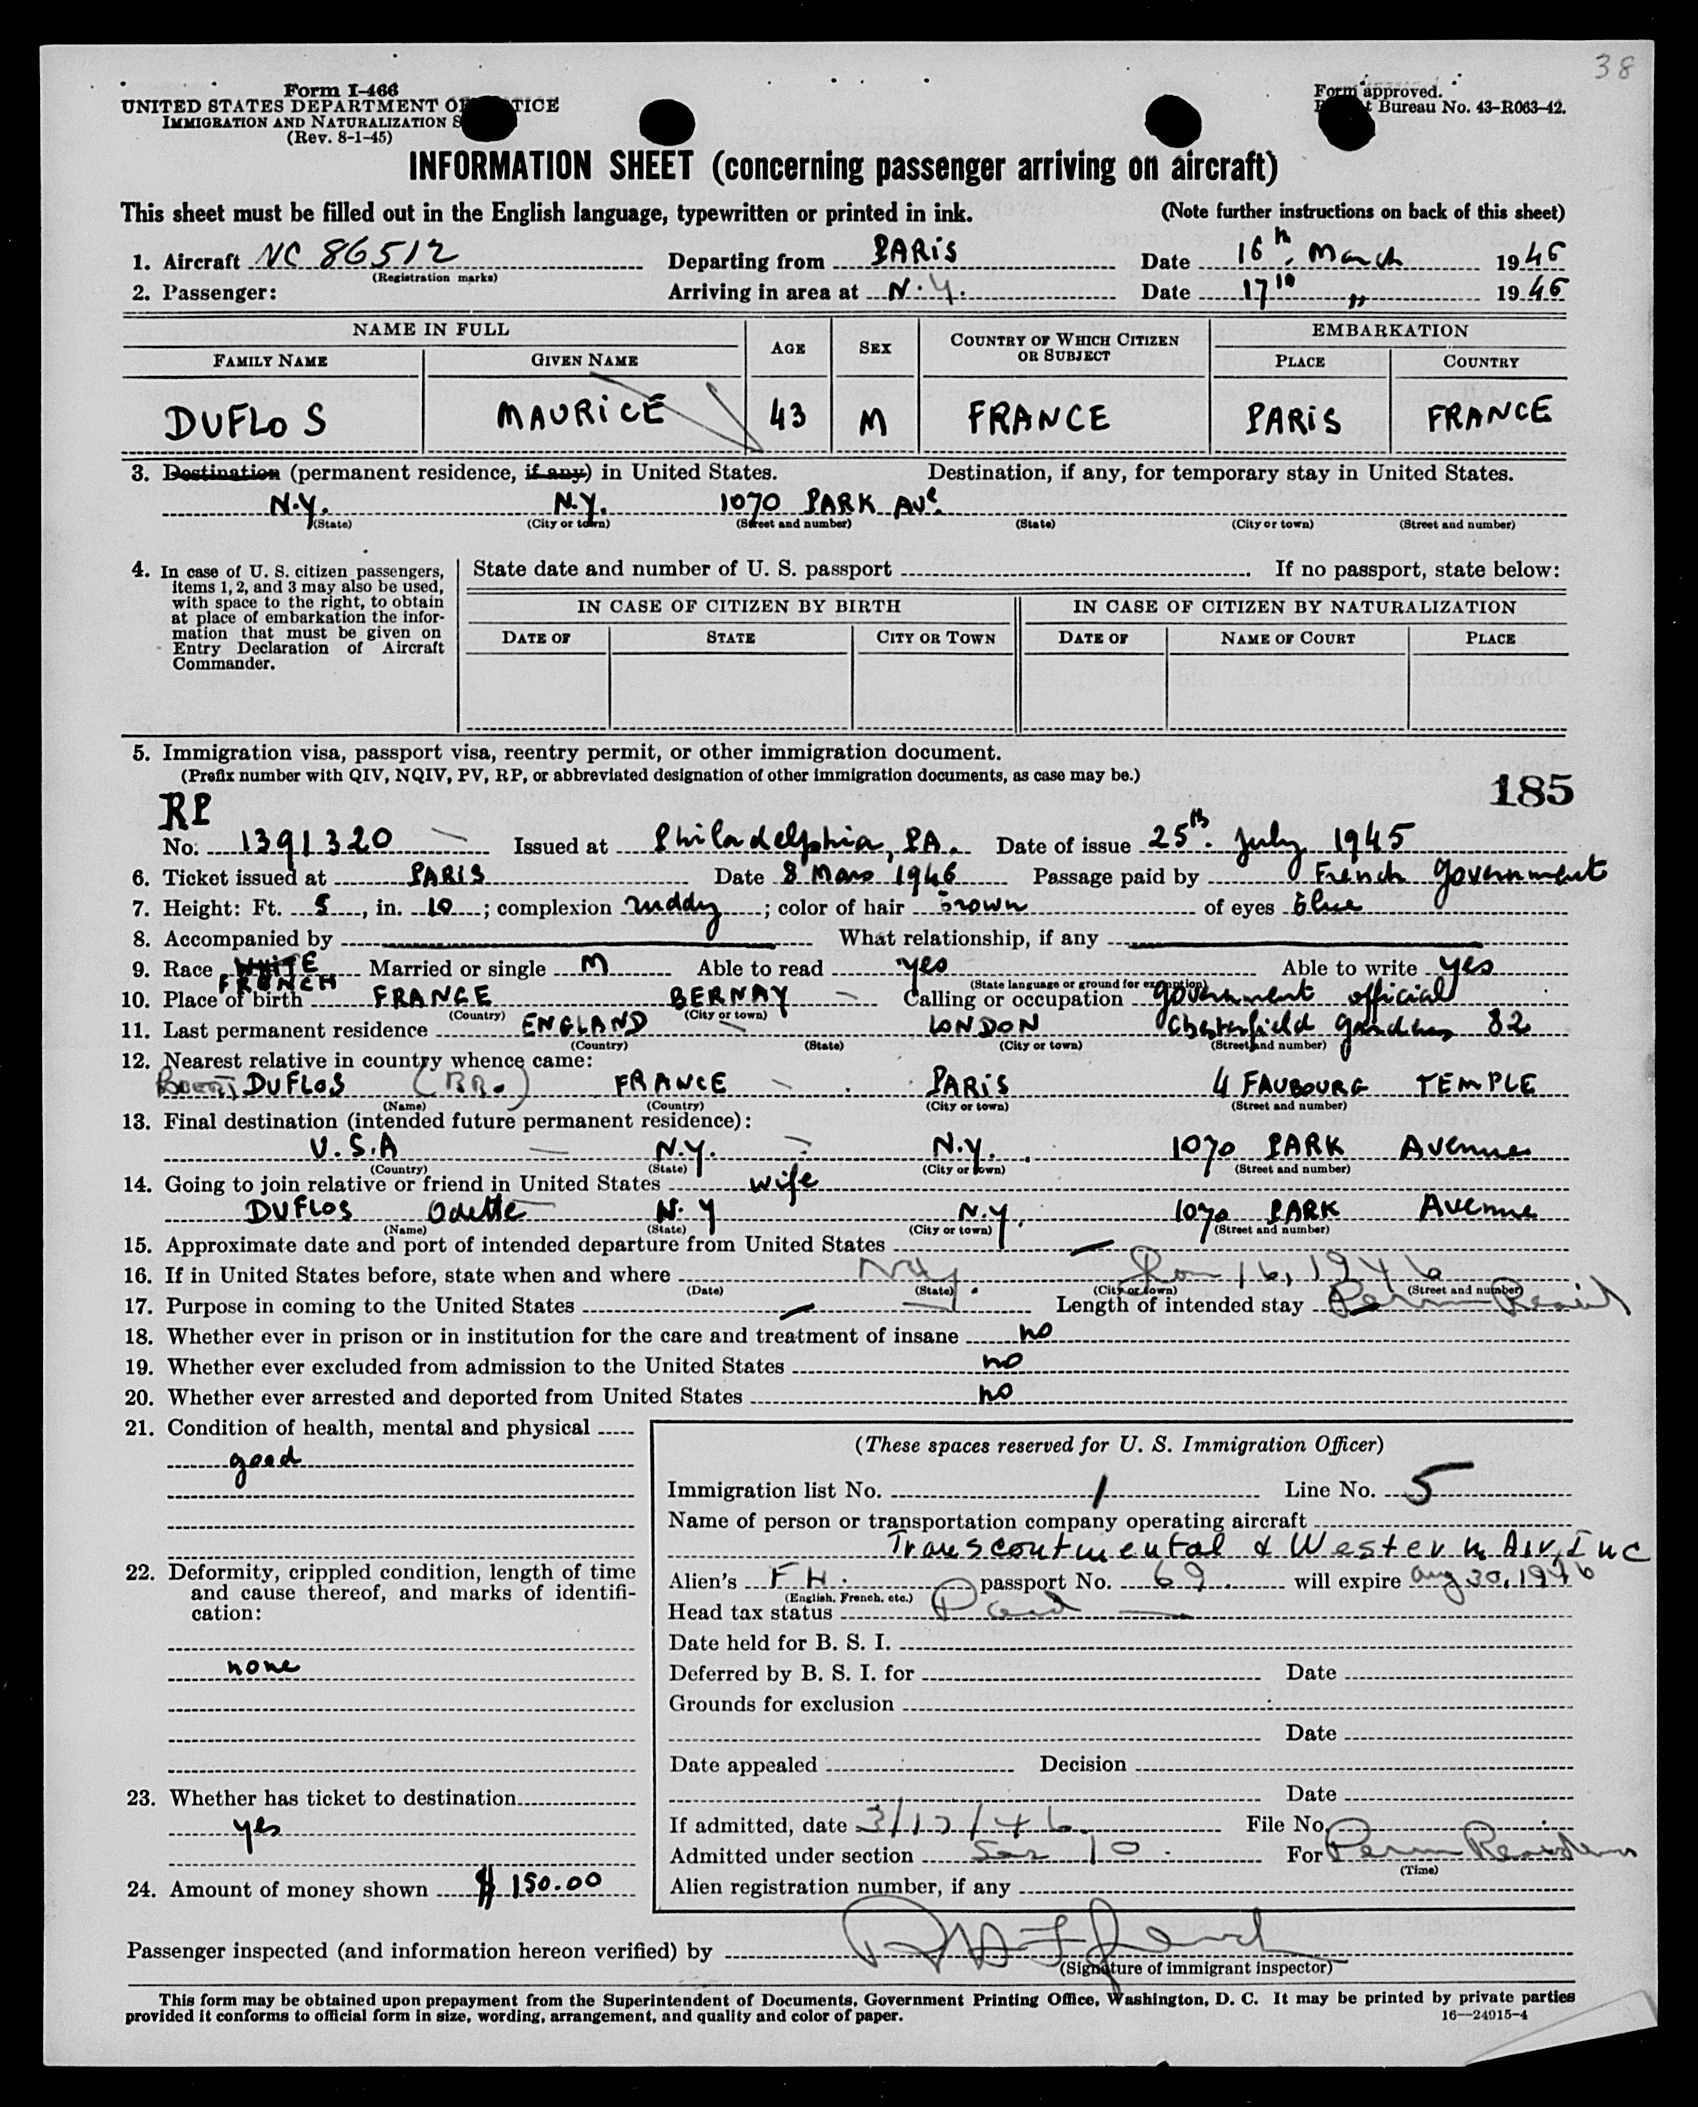 38
Form I-466
UNITED STATES DEPARTMENT OF JUSTICE
IMMIGRATION AND NATURALIZATION S
(Rev. 8-1-45)
Form approved.
Bureau No. 43-R063-42.
INFORMATION SHEET (concerning passenger arriving on aircraft)
This sheet must be filled out in the English language, typewritten or printed in ink. (Note further instructions on back of this sheet)
1. Aircraft NC 86512 Departing from PARIS Date 16th March 1946
(Registration marks)
2. Passenger: Arriving in area at N.Y. Date 17th " 1946
NAME IN FULL AGE SEX COUNTRY OF WHICH CITIZEN OR SUBJECT EMBARKATION
FAMILY NAME GIVEN NAME PLACE COUNTRY
DUFLOS MAURICE 43 M FRANCE PARIS FRANCE
3. Destination (permanent residence, if any) in United States. Destination, if any, for temporary stay in United States.
N.Y. N.Y. 1070 PARK Ave
(State) (City or town) (Street and number) (State) (City or town) (Street and number)
4. In case of U. S. citizen passengers, items 1, 2, and 3 may also be used, with space to the right, to obtain at place of embarkation the information that must be given on Entry Declaration of Aircraft Commander.
State date and number of U. S. passport If no passport, state below:
IN CASE OF CITIZEN BY BIRTH IN CASE OF CITIZEN BY NATURALIZATION
DATE OF STATE CITY OR TOWN DATE OF NAME OF COURT PLACE
5. Immigration visa, passport visa, reentry permit, or other immigration document.
(Prefix number with QIV, NQIV, PV, RP, or abbreviated designation of other immigration documents, as case may be.)
185
RP
No. 1391320 Issued at Philadelphia, PA. Date of issue 25th July 1945
6. Ticket issued at PARIS Date 8 Mars 1946 Passage paid by French Government
7. Height: Ft. 5, in. 10; complexion ruddy; color of hair brown of eyes blue
8. Accompanied by What relationship, if any
9. Race WHITE FRENCH Married or single M Able to read yes Able to write yes
(State language or ground for exemption)
10. Place of birth FRANCE BERNAY Calling or occupation government official
(Country) (City or town)
11. Last permanent residence ENGLAND LONDON Chesterfield gardens 32
(Country) (State) (City or town) (Street and number)
12. Nearest relative in country whence came:
DUFLOS (BR.) FRANCE PARIS 4 FAUBOURG TEMPLE
(Name) (Country) (City or town) (Street and number)
13. Final destination (intended future permanent residence):
U.S.A N.Y. N.Y. 1070 PARK Avenue
(Country) (State) (City or town) (Street and number)
14. Going to join relative or friend in United States wife
DUFLOS Odette N.Y N.Y. 1070 PARK Avenue
(Name) (State) (City or town) (Street and number)
15. Approximate date and port of intended departure from United States
16. If in United States before, state when and where NY Jan 16, 1946
(Date) (State) (City or town) (Street and number)
17. Purpose in coming to the United States Length of intended stay Perm Resid
18. Whether ever in prison or in institution for the care and treatment of insane no
19. Whether ever excluded from admission to the United States no
20. Whether ever arrested and deported from United States no
21. Condition of health, mental and physical
good
22. Deformity, crippled condition, length of time and cause thereof, and marks of identification:
none
23. Whether has ticket to destination
yes
24. Amount of money shown $ 150.00
(These spaces reserved for U. S. Immigration Officer)
Immigration list No. 1 Line No. 5
Name of person or transportation company operating aircraft
Transcontinental & Western Air, Inc
Alien's FH. passport No. 69 will expire Aug 30, 1946
(English, French, etc.)
Head tax status Paid
Date held for B. S. I.
Deferred by B. S. I. for Date
Grounds for exclusion
Date
Date appealed Decision
Date
If admitted, date 3/17/46 File No.
Admitted under section Sec 10 For Perm Residence
(Time)
Alien registration number, if any
Passenger inspected (and information hereon verified) by
(Signature of immigrant inspector)
This form may be obtained upon prepayment from the Superintendent of Documents, Government Printing Office, Washington, D. C. It may be printed by private parties
provided it conforms to official form in size, wording, arrangement, and quality and color of paper. 16—24915-4